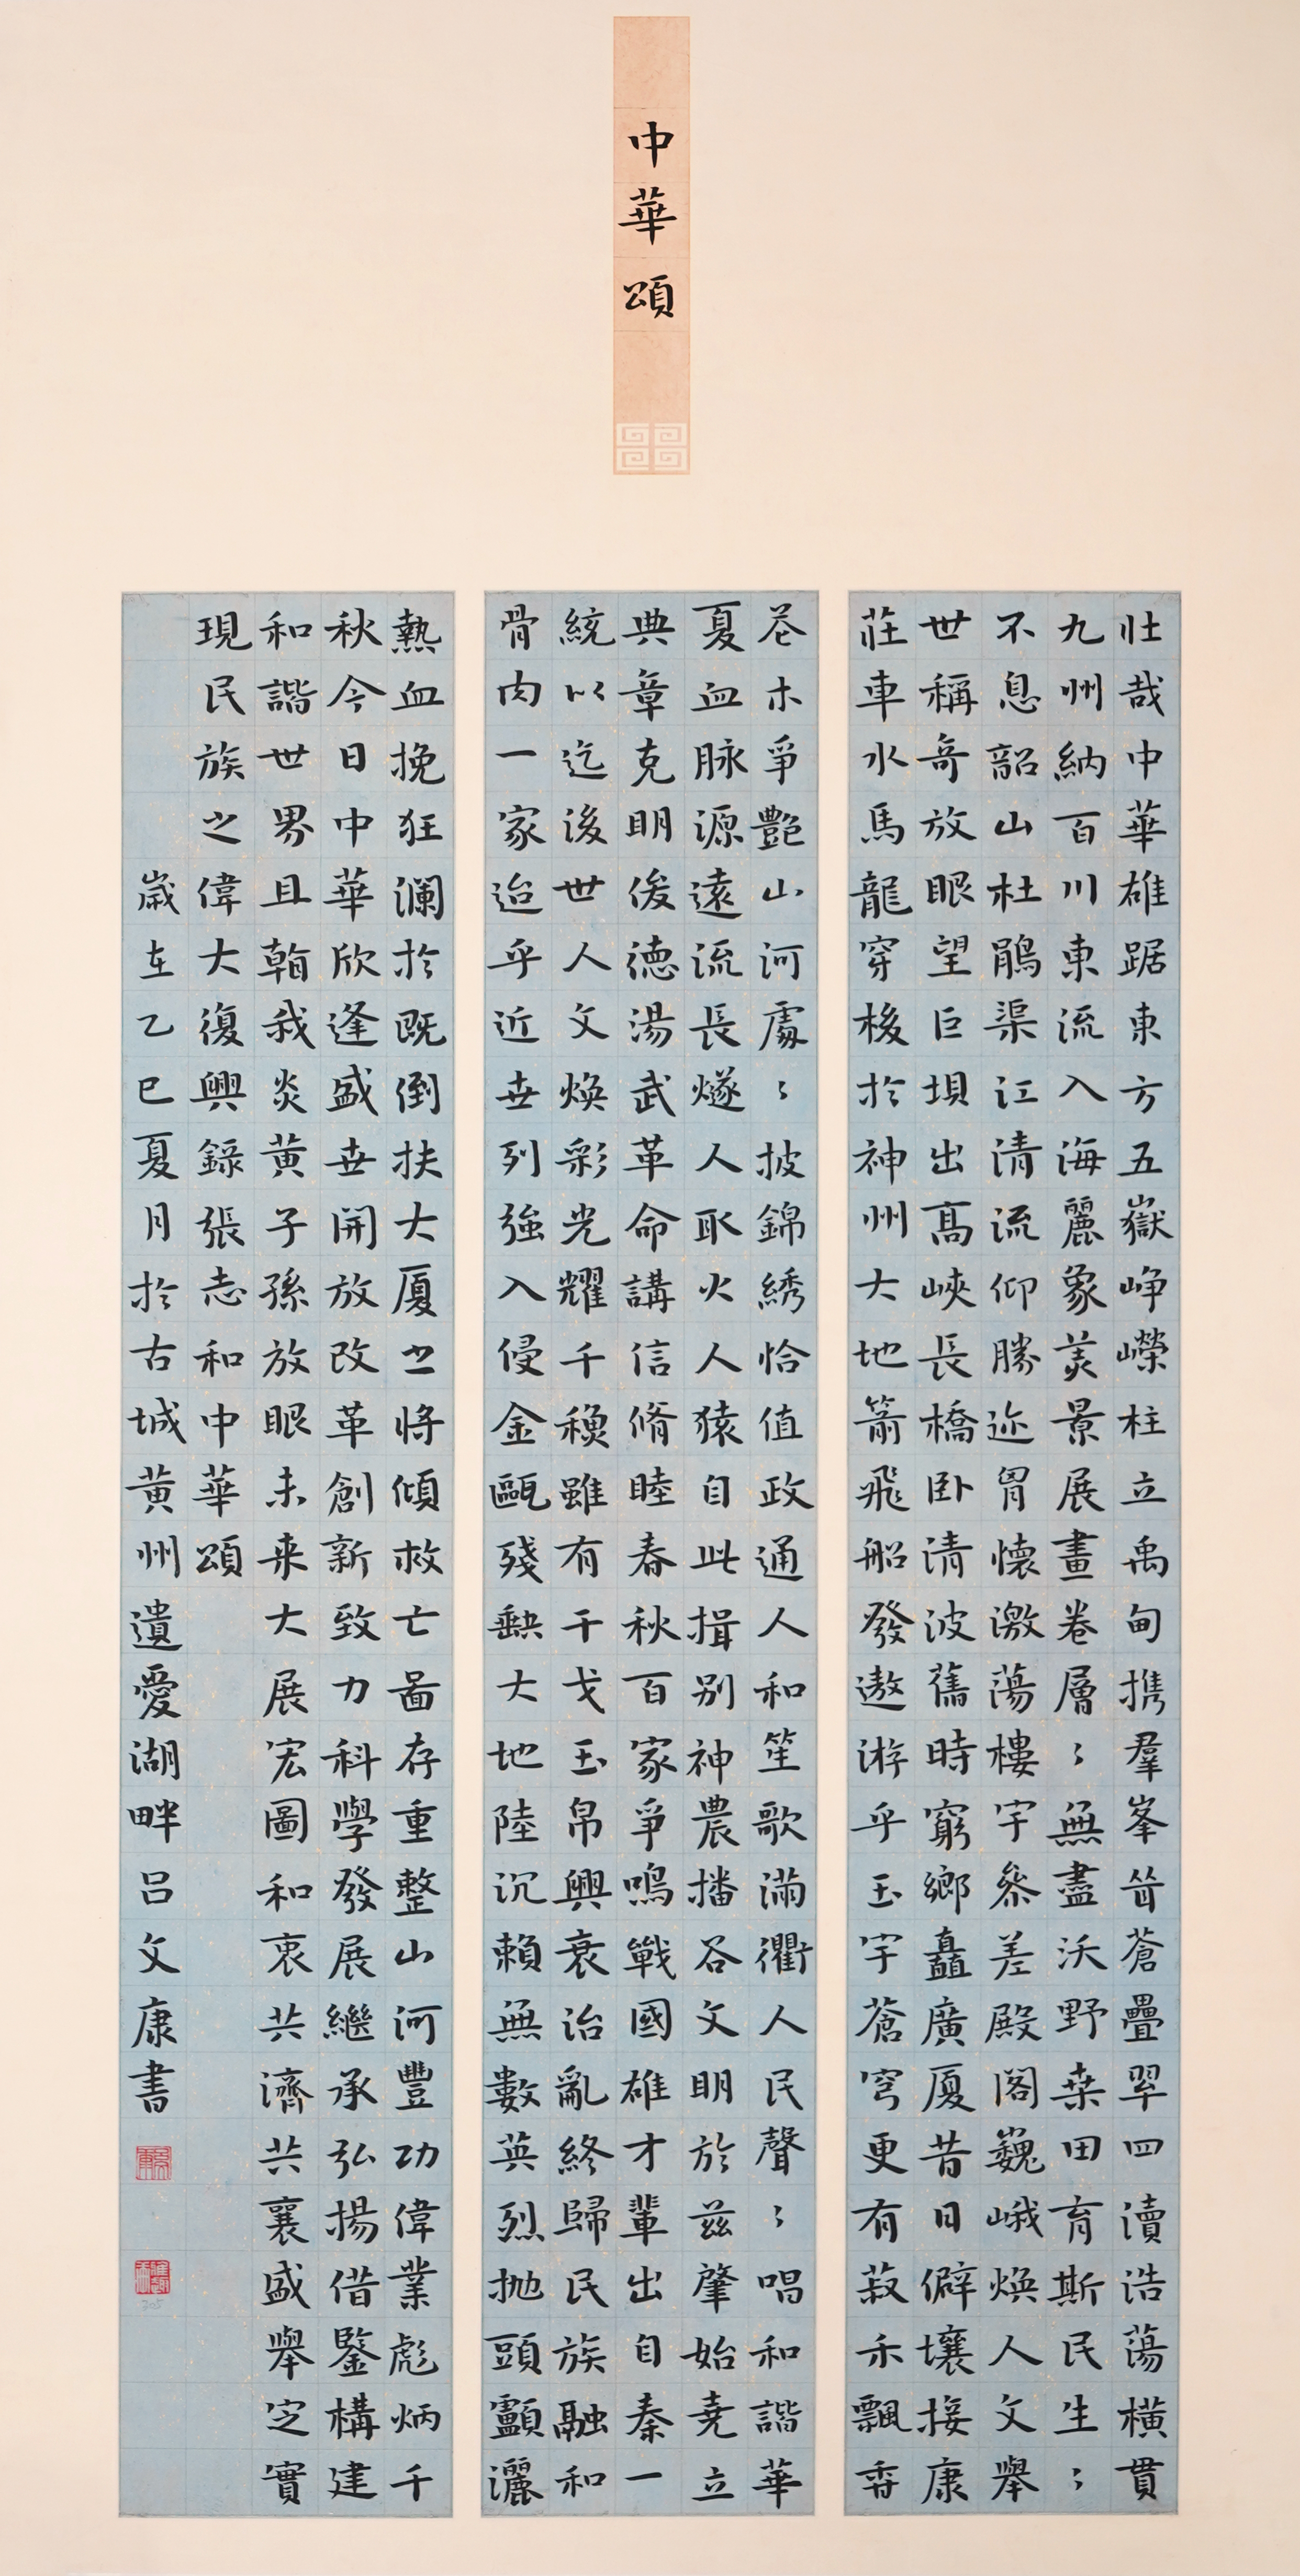 中華頌
壯哉中華雄踞東方五嶽崢嶸柱立禹甸携羣峯耸蒼疊翠四瀆浩蕩橫貫
九州納百川東流入海麗象美景展畫卷層〻無盡沃野桑田育斯民生〻
不息韶山杜鵑渠江清流仰勝迹胷懷激蕩樓宇參差殿閣巍峨煥人文舉
世稱奇放眼望巨壩出高峽長橋卧清波舊時窮鄉矗廣厦昔日僻壤接康
莊車水馬龍穿梭於神州大地箭飛船發遨游乎玉宇蒼穹更有菽禾飄香
花木爭艷山河處〻披錦綉恰值政通人和笙歌滿衢人民聲〻唱和諧華
夏血脉源遠流長燧人取火人猿自此揖别神農播谷文明於兹肇始堯立
典章克明俊德湯武革命講信脩睦春秋百家爭鳴戰國雄才輩出自秦一
統以迄後世人文煥彩光耀千穐雖有干戈玉帛興衰治亂終歸民族融和
骨肉一家迨乎近世列強入侵金甌殘缺大地陸沉賴無數英烈抛頭顱灑
熱血挽狂瀾於既倒扶大厦之將傾救亡圖存重整山河豐功偉業彪炳千
秋今日中華欣逢盛世開放改革創新致力科學發展繼承弘揚借鑒構建
和諧世界且看我炎黃子孫放眼未来大展宏圖和衷共濟共襄盛舉定實
現民族之偉大復興錄張志和中華頌
歲在乙巳夏月於古城黃州遺愛湖畔吕文康書